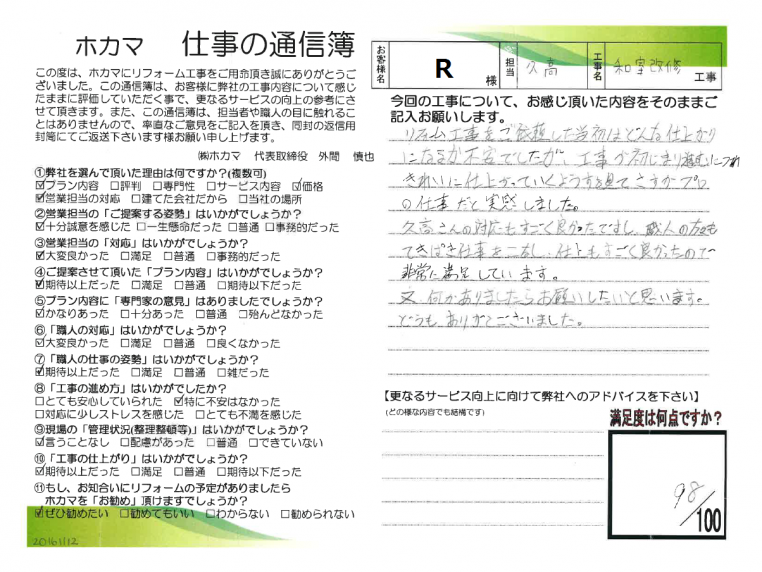 ホカマ 仕事の通信簿
この度は、ホカマにリフォーム工事をご用命頂き誠にありがとうご
ざいました。この通信簿は、お客様に弊社の工事内容について感じ
たままに評価していただく事で、更なるサービスの向上の参考にさ
せて頂きます。また、この通信簿は、担当者や職人の目に触れるこ
とはありませんので、率直なご意見をご記入を頂き、同封の返信用
封筒にてご返送下さいます様お願い申し上げます。
㈱ホカマ 代表取締役 外間 慎也
①弊社を選んで頂いた理由は何ですか?(複数可)
☑プラン内容 □評判 □専門性 □サービス内容 ☑価格
☑営業担当の対応 □建てた会社だから □当社の場所
②営業担当の「ご提案する姿勢」はいかがでしょうか?
☑十分誠意を感じた □一生懸命だった □普通 □事務的だった
③営業担当の「対応」はいかがでしょうか?
☑大変良かった □満足 □普通 □事務的だった
④ご提案させて頂いた「プラン内容」はいかがでしょうか?
☑期待以上だった □満足 □普通 □期待以下だった
⑤プラン内容に「専門家の意見」はありましたでしょうか?
☑かなりあった □十分あった □普通 □殆んどなかった
⑥「職人の対応」はいかがでしょうか?
☑大変良かった □満足 □普通 □良くなかった
⑦「職人の仕事の姿勢」はいかがでしょうか?
☑期待以上だった □満足 □普通 □雑だった
⑧「工事の進め方」はいかがでしたか?
□とても安心していられた ☑特に不安はなかった
□対応に少しストレスを感じた □とても不満を感じた
⑨現場の「管理状況(整理整頓等)」はいかがでしょうか?
☑言うことなし □配慮があった □普通 □できていない
⑩「工事の仕上がり」はいかがでしょうか?
☑期待以上だった □満足 □普通 □期待以下だった
⑪もし、お知合いにリフォームの予定がありましたら
ホカマを「お勧め」頂けますでしょうか?
☑ぜひ勧めたい □勧めてもいい □わからない □勧められない
20161112
お客様名 R 様 担当 久高 工事名 和室改修 工事
今回の工事について、お感じ頂いた内容をそのままご
記入お願いします。
リフォーム工事をご依頼した当初はどんな仕上がり
になるか不安でしたが、工事が始じまり進むにつれ
きれいに仕上がっていくようすを見てさすがプロ
の仕事だと実感しました。
久高さんの対応もすごく良かったですし、職人の方も
てきぱき仕事をこなし、仕上もすごく良かったので
非常に満足しています。
又、何かありましたらお願いしたいと思います。
どうもありがとうございました。
【更なるサービス向上に向けて弊社へのアドバイスを下さい】
(どの様な内容でも結構です)
満足度は何点ですか?
98
/100